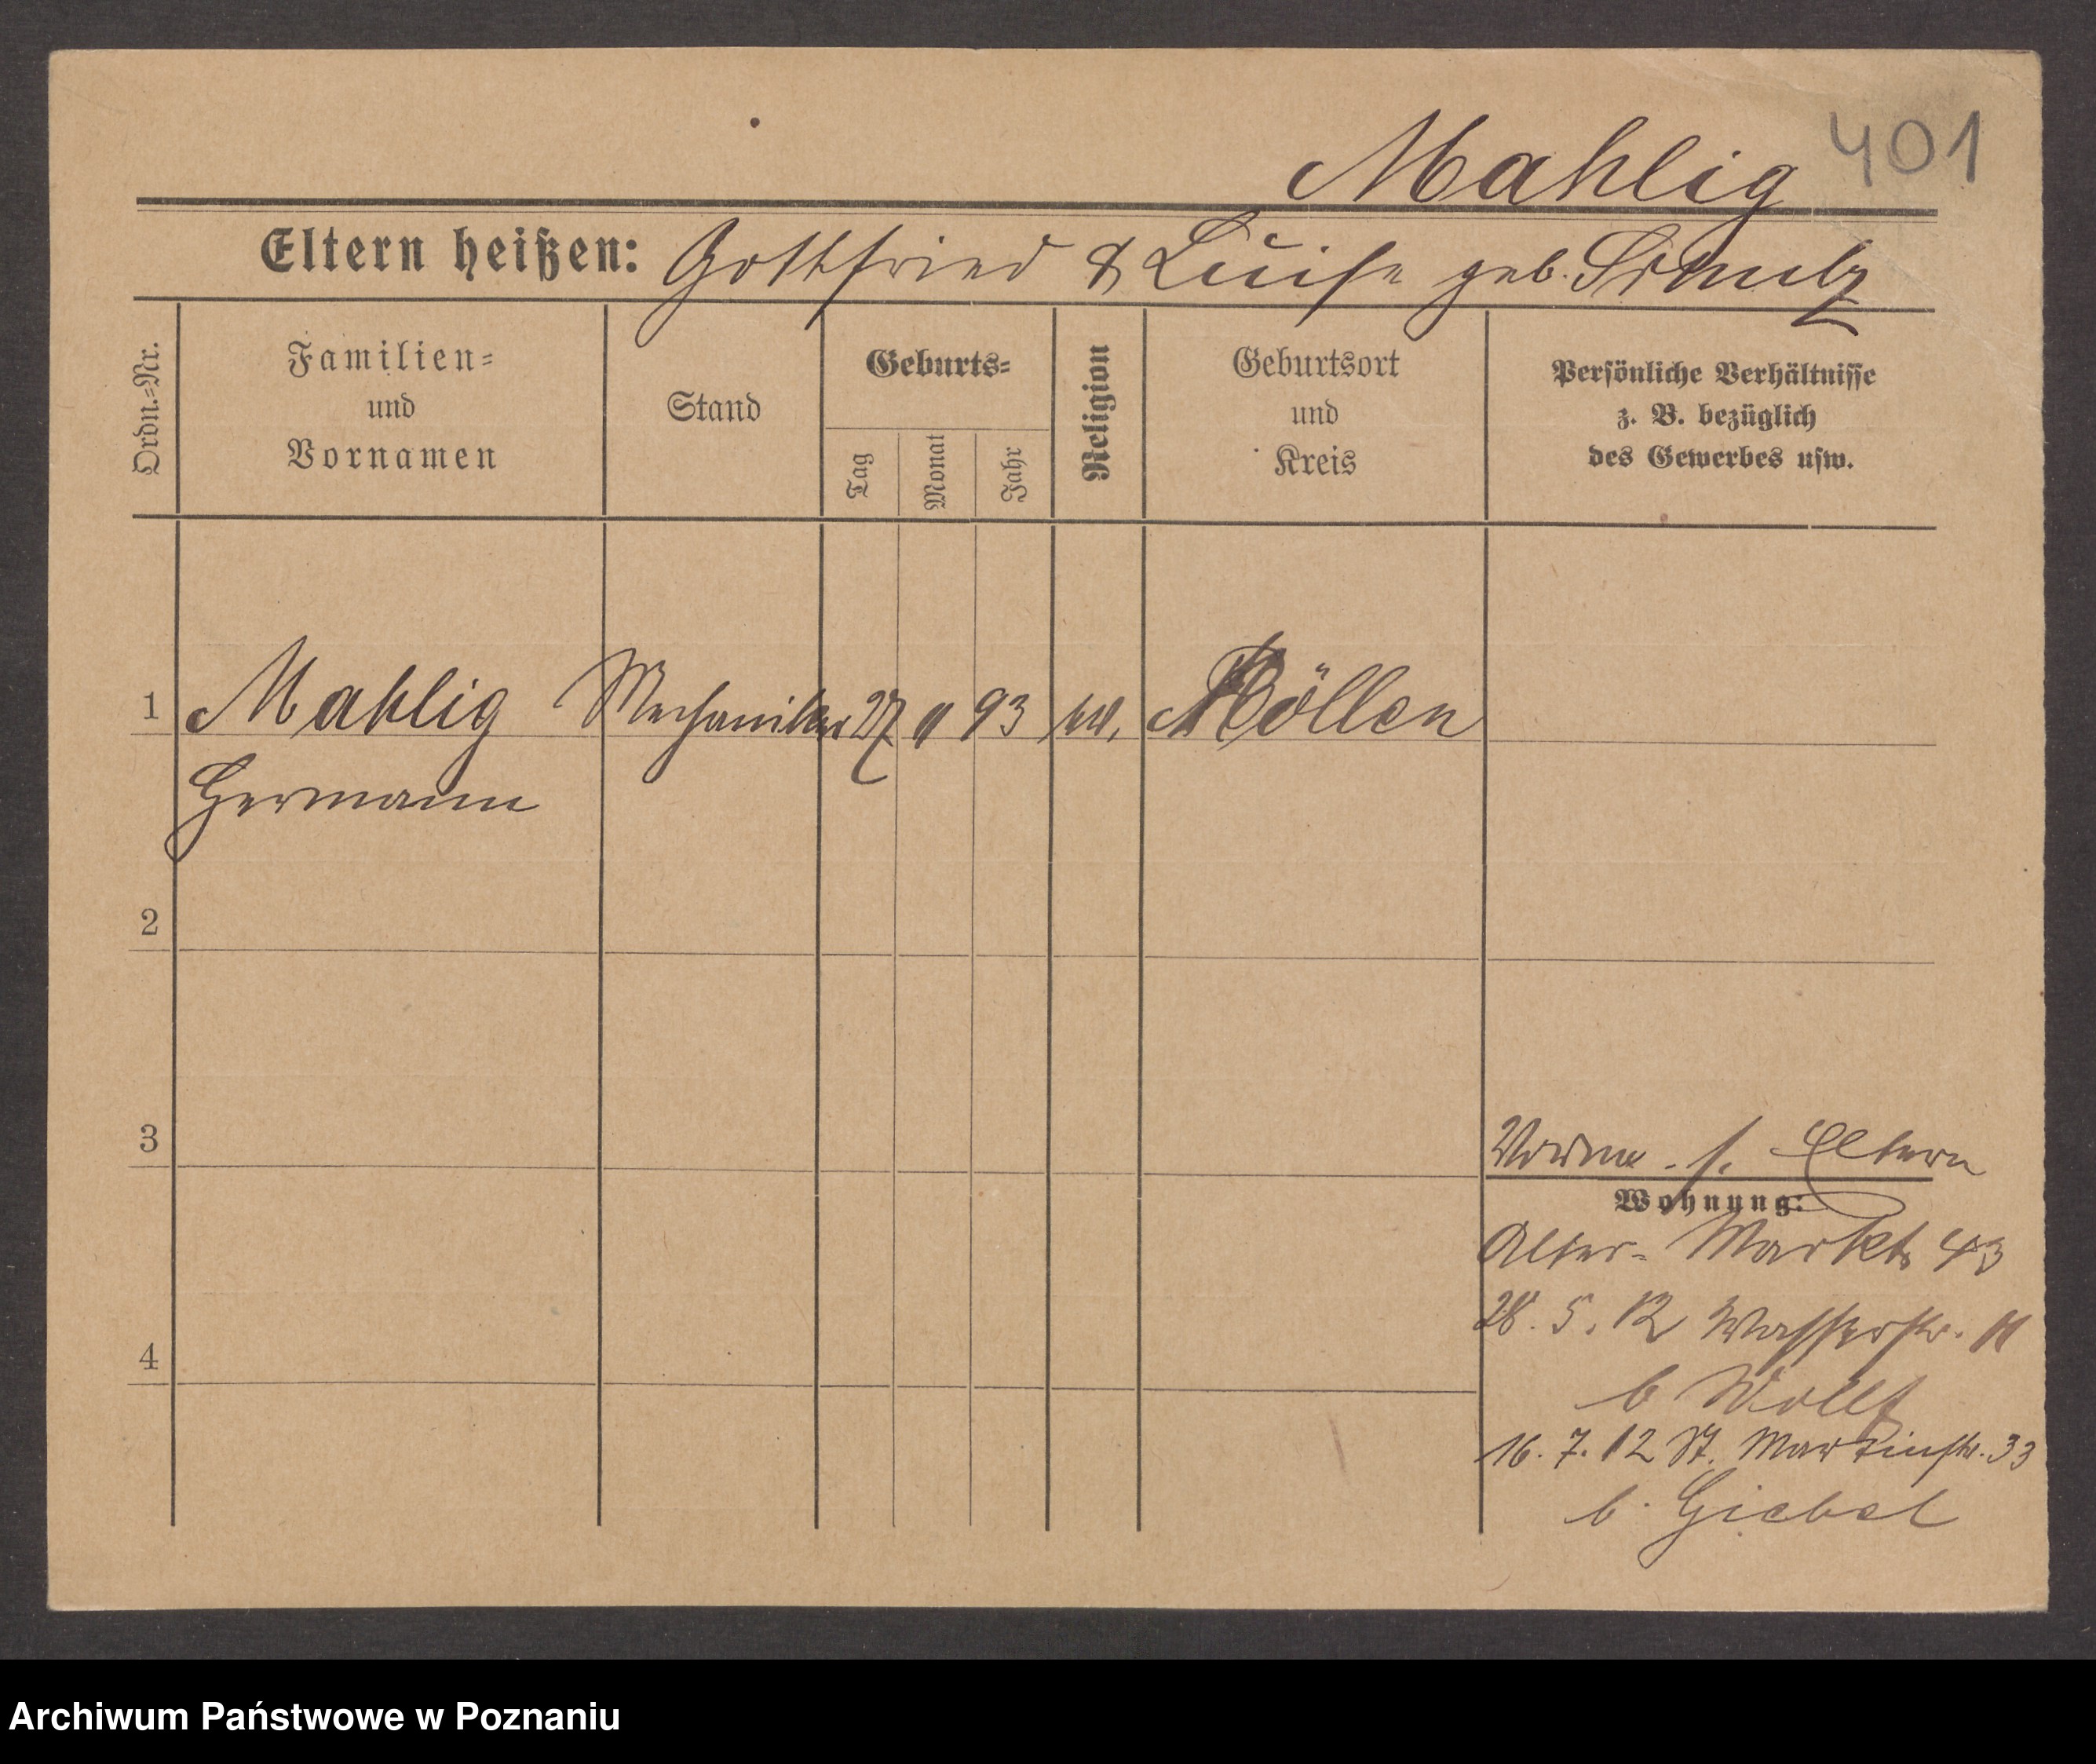 Mahlig 401
Eltern heißen: Gottfried & Luise geb.
Ordn.-Nr.
Familien-
und
Vornamen
Stand
Geburts-
Tag
Monat
Jahr
Religion
Geburtsort
und
Kreis
Persönliche Verhältnisse
z. B. bezüglich
des Gewerbes usw.
1 Mahlig Mechaniker 27 93 Möllen
Hermann
2
3
s. Eltern
Wohnung:
Alter-Markt 43
28. 5. 12 Wasserstr. 11
b Wolff
16. 7. 12 St. Martinstr. 33
b. Giebel
4
Archiwum Państwowe w Poznaniu